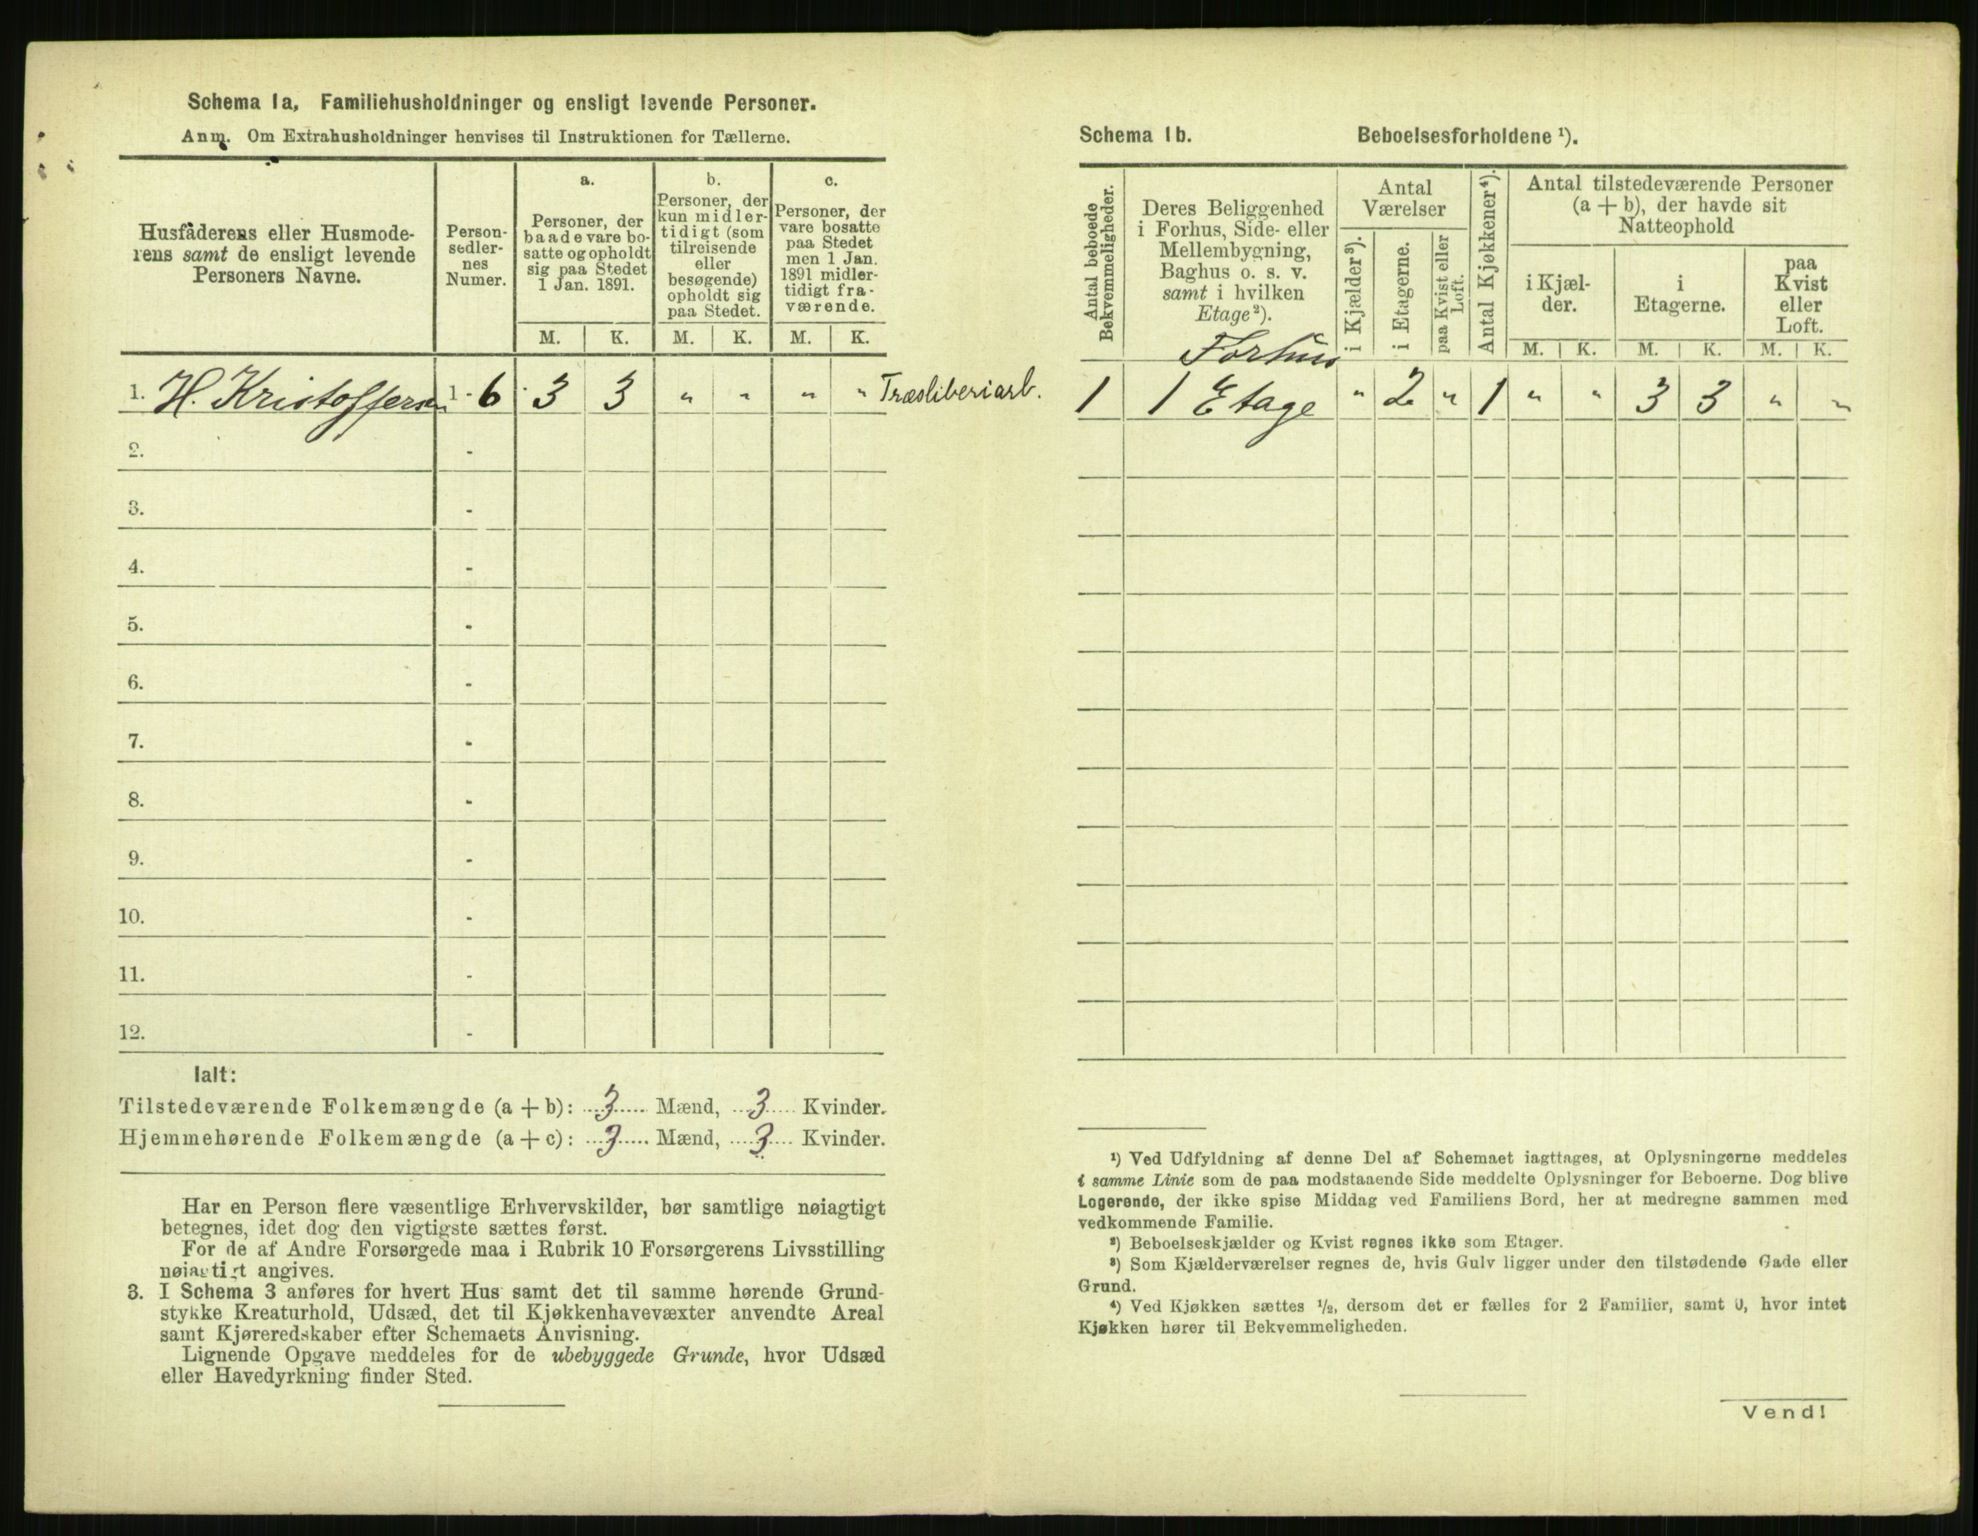 Schema 1a, Familiehusholdninger og ensligt levende Personer.
Anm. Om Extrahusholdninger henvises til Instruktionen for Tællerne.
Husfäderens eller Husmode-
rens samt de ensligt levende
Personers Navne.
Person-
sedler-
nes
Numer.
a.
Personer, der
baade vare bo-
satte og opholdt
sig paa Stedet
1 Jan. 1891.
b.
Personer, der
kun midler-
tidigt (som
tilreisende
eller
besøgende)
opholdt sig
paa Stedet.
c.
Personer, der
vare bosatte
paa Stedet
men 1 Jan.
1891 midler-
tidigt fra-
værende.
M. K. M. K. M. K.
1. H. Kristoffersen 1 - 6 3 3 „ „ „ „ Træsliberiarb.
2. -
3. -
4. -
5. -
6. -
7. -
8. -
9. -
10. -
11. -
12. -
Ialt:
Tilstedeværende Folkemængde (a + b): 3 Mænd, 3 Kvinder.
Hjemmehørende Folkemængde (a + c): 3 Mænd, 3 Kvinder.
Har en Person flere væsentlige Erhvervskilder, bør samtlige nøiagtigt
betegnes, idet dog den vigtigste sættes først.
For de af Andre Forsørgede maa i Rubrik 10 Forsørgerens Livsstilling
nøiagtigt angives.
3. I Schema 3 anføres for hvert Hus samt det til samme hørende Grund-
stykke Kreaturhold, Udsæd, det til Kjøkkenhavevæxter anvendte Areal
samt Kjøreredskaber efter Schemaets Anvisning.
Lignende Opgave meddeles for de ubebyggede Grunde, hvor Udsæd
eller Havedyrkning finder Sted.
Schema 1b. Beboelsesforholdene ¹).
Antal beboede
Bekvemmeligheder.
Deres Beliggenhed
i Forhus, Side- eller
Mellembygning,
Baghus o. s. v.
samt i hvilken
Etage²).
Antal
Værelser
i Kjælder³).
i Etagerne.
paa Kvist eller
Loft.
Antal Kjøkkener⁴).
Antal tilstedeværende Personer
(a + b), der havde sit
Natteophold
i Kjæl-
der.
i
Etagerne.
paa
Kvist
eller
Loft.
M. K. M. K. M. K.
Forhus
1 1 Etage „ 2 „ 1 „ „ 3 3 „ „
¹) Ved Udfyldning af denne Del af Schemaet iagttages, at Oplysningerne meddeles
i samme Linie som de paa modstaaende Side meddelte Oplysninger for Beboerne. Dog blive
Logerende, der ikke spise Middag ved Familiens Bord, her at medregne sammen med
vedkommende Familie.
²) Beboelseskjælder og Kvist regnes ikke som Etager.
³) Som Kjælderværelser regnes de, hvis Gulv ligger under den tilstødende Gade eller
Grund.
⁴) Ved Kjøkken sættes ½, dersom det er fælles for 2 Familier, samt 0, hvor intet
Kjøkken hører til Bekvemmeligheden.
Vend!